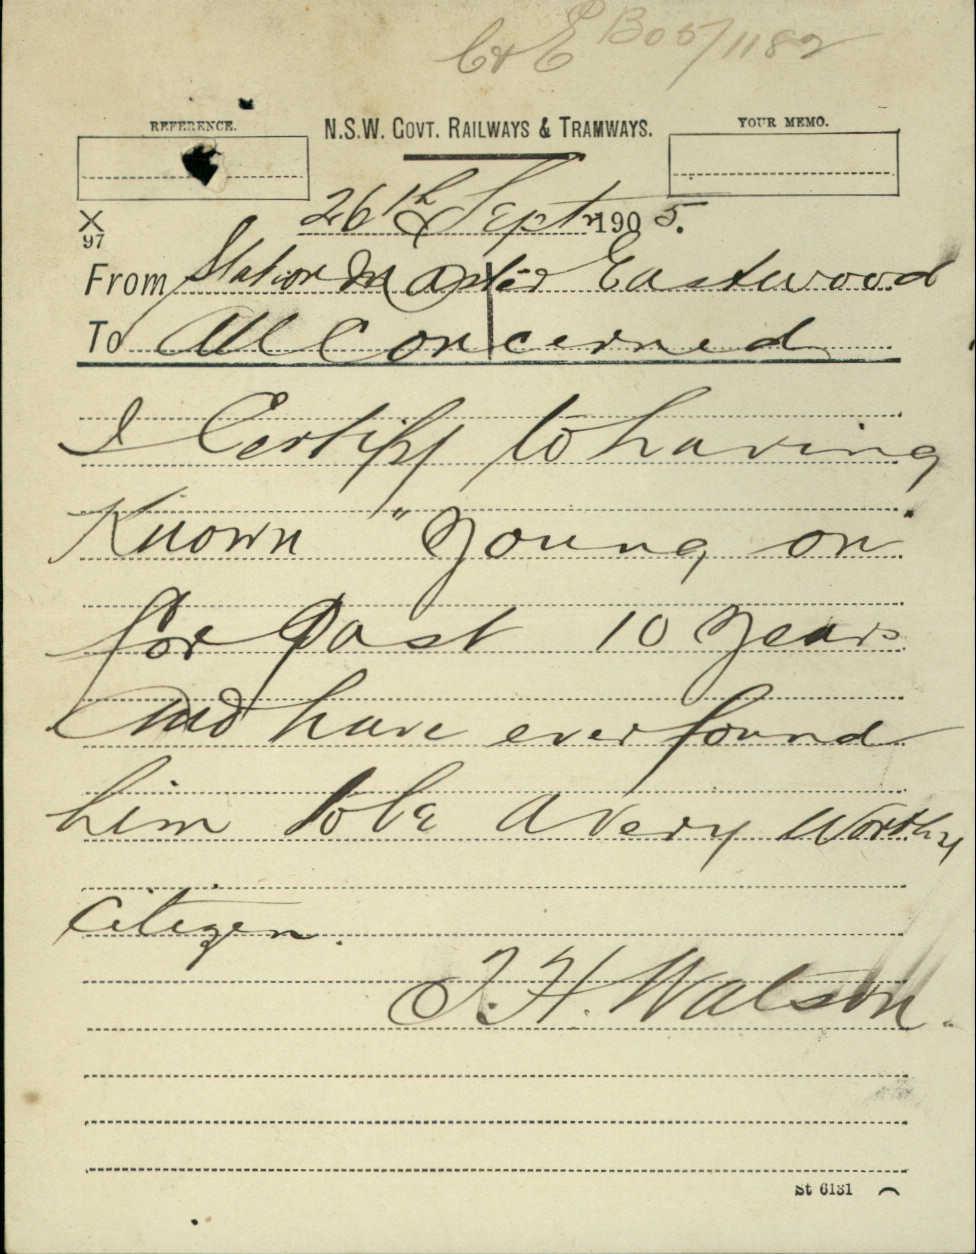 C & E B05/1182
REFERENCE.
N.S.W. GOVT. RAILWAYS & TRAMWAYS.
YOUR MEMO.
26th Septr 1905.
X
97
From Station Master Eastwood
To All Concerned
I Certify to having
Known "Young on"
for Past 10 Years
And have ever found
him to be a very worthy
Citizen.
J. H. Watson.
St 6131